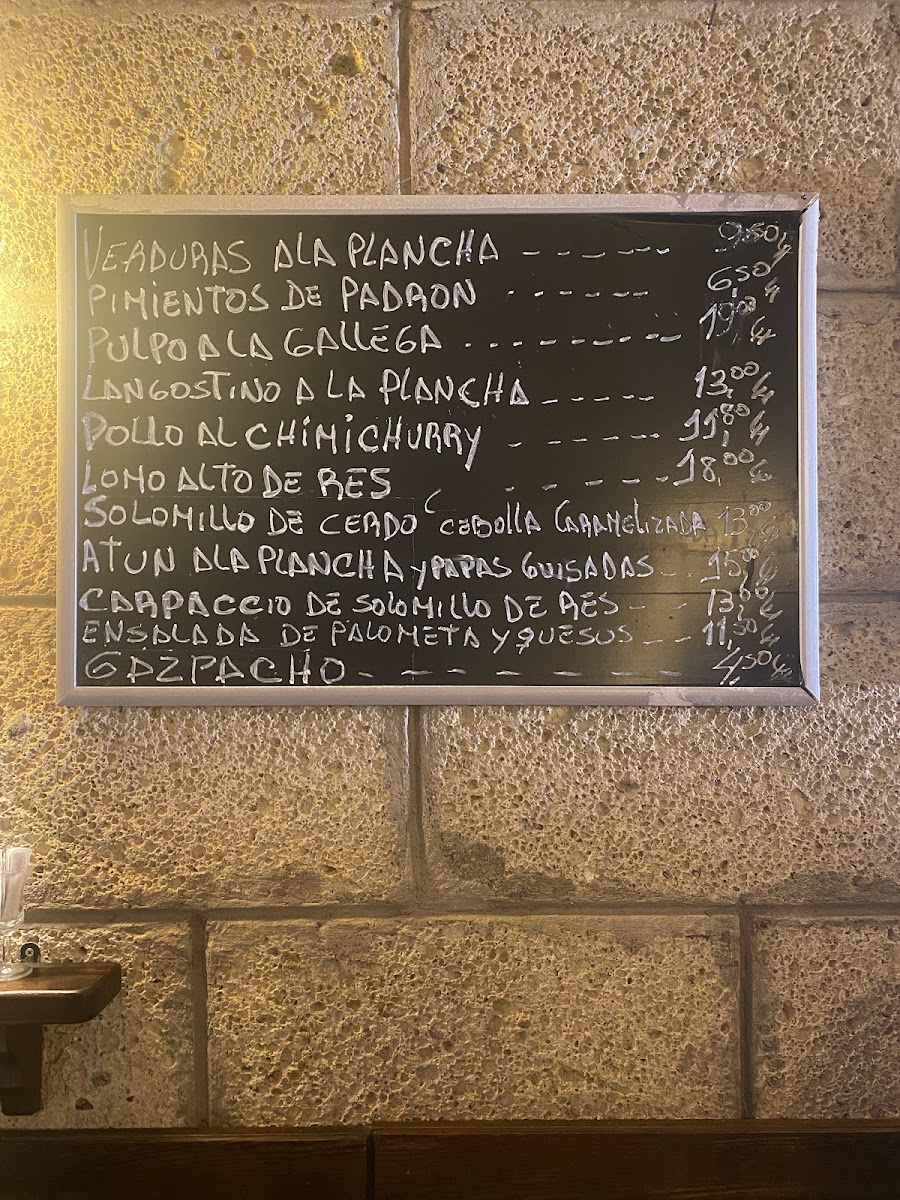 VERDURAS A LA PLANCHA ------ 9.50 €
PIMIENTOS DE PADRON ------ 6,50 €
PULPO A LA GALLEGA --------- 19,00 €
LANGOSTINO A LA PLANCHA ----- 13,00 €
POLLO AL CHIMICHURRY ------ 11,80 €
LOMO ALTO DE RES ------ 18,00 €
SOLOMILLO DE CERDO C CEBOLLA CARAMELIZADA 13,00 €
ATUN A LA PLANCHA y PAPAS GUISADAS -- 15,00 €
CARPACCIO DE SOLOMILLO DE RES -- 13,60 €
ENSALADA DE PALOMETA Y QUESUS -- 11,50 €
GAZPACHO ------ 4,50 €